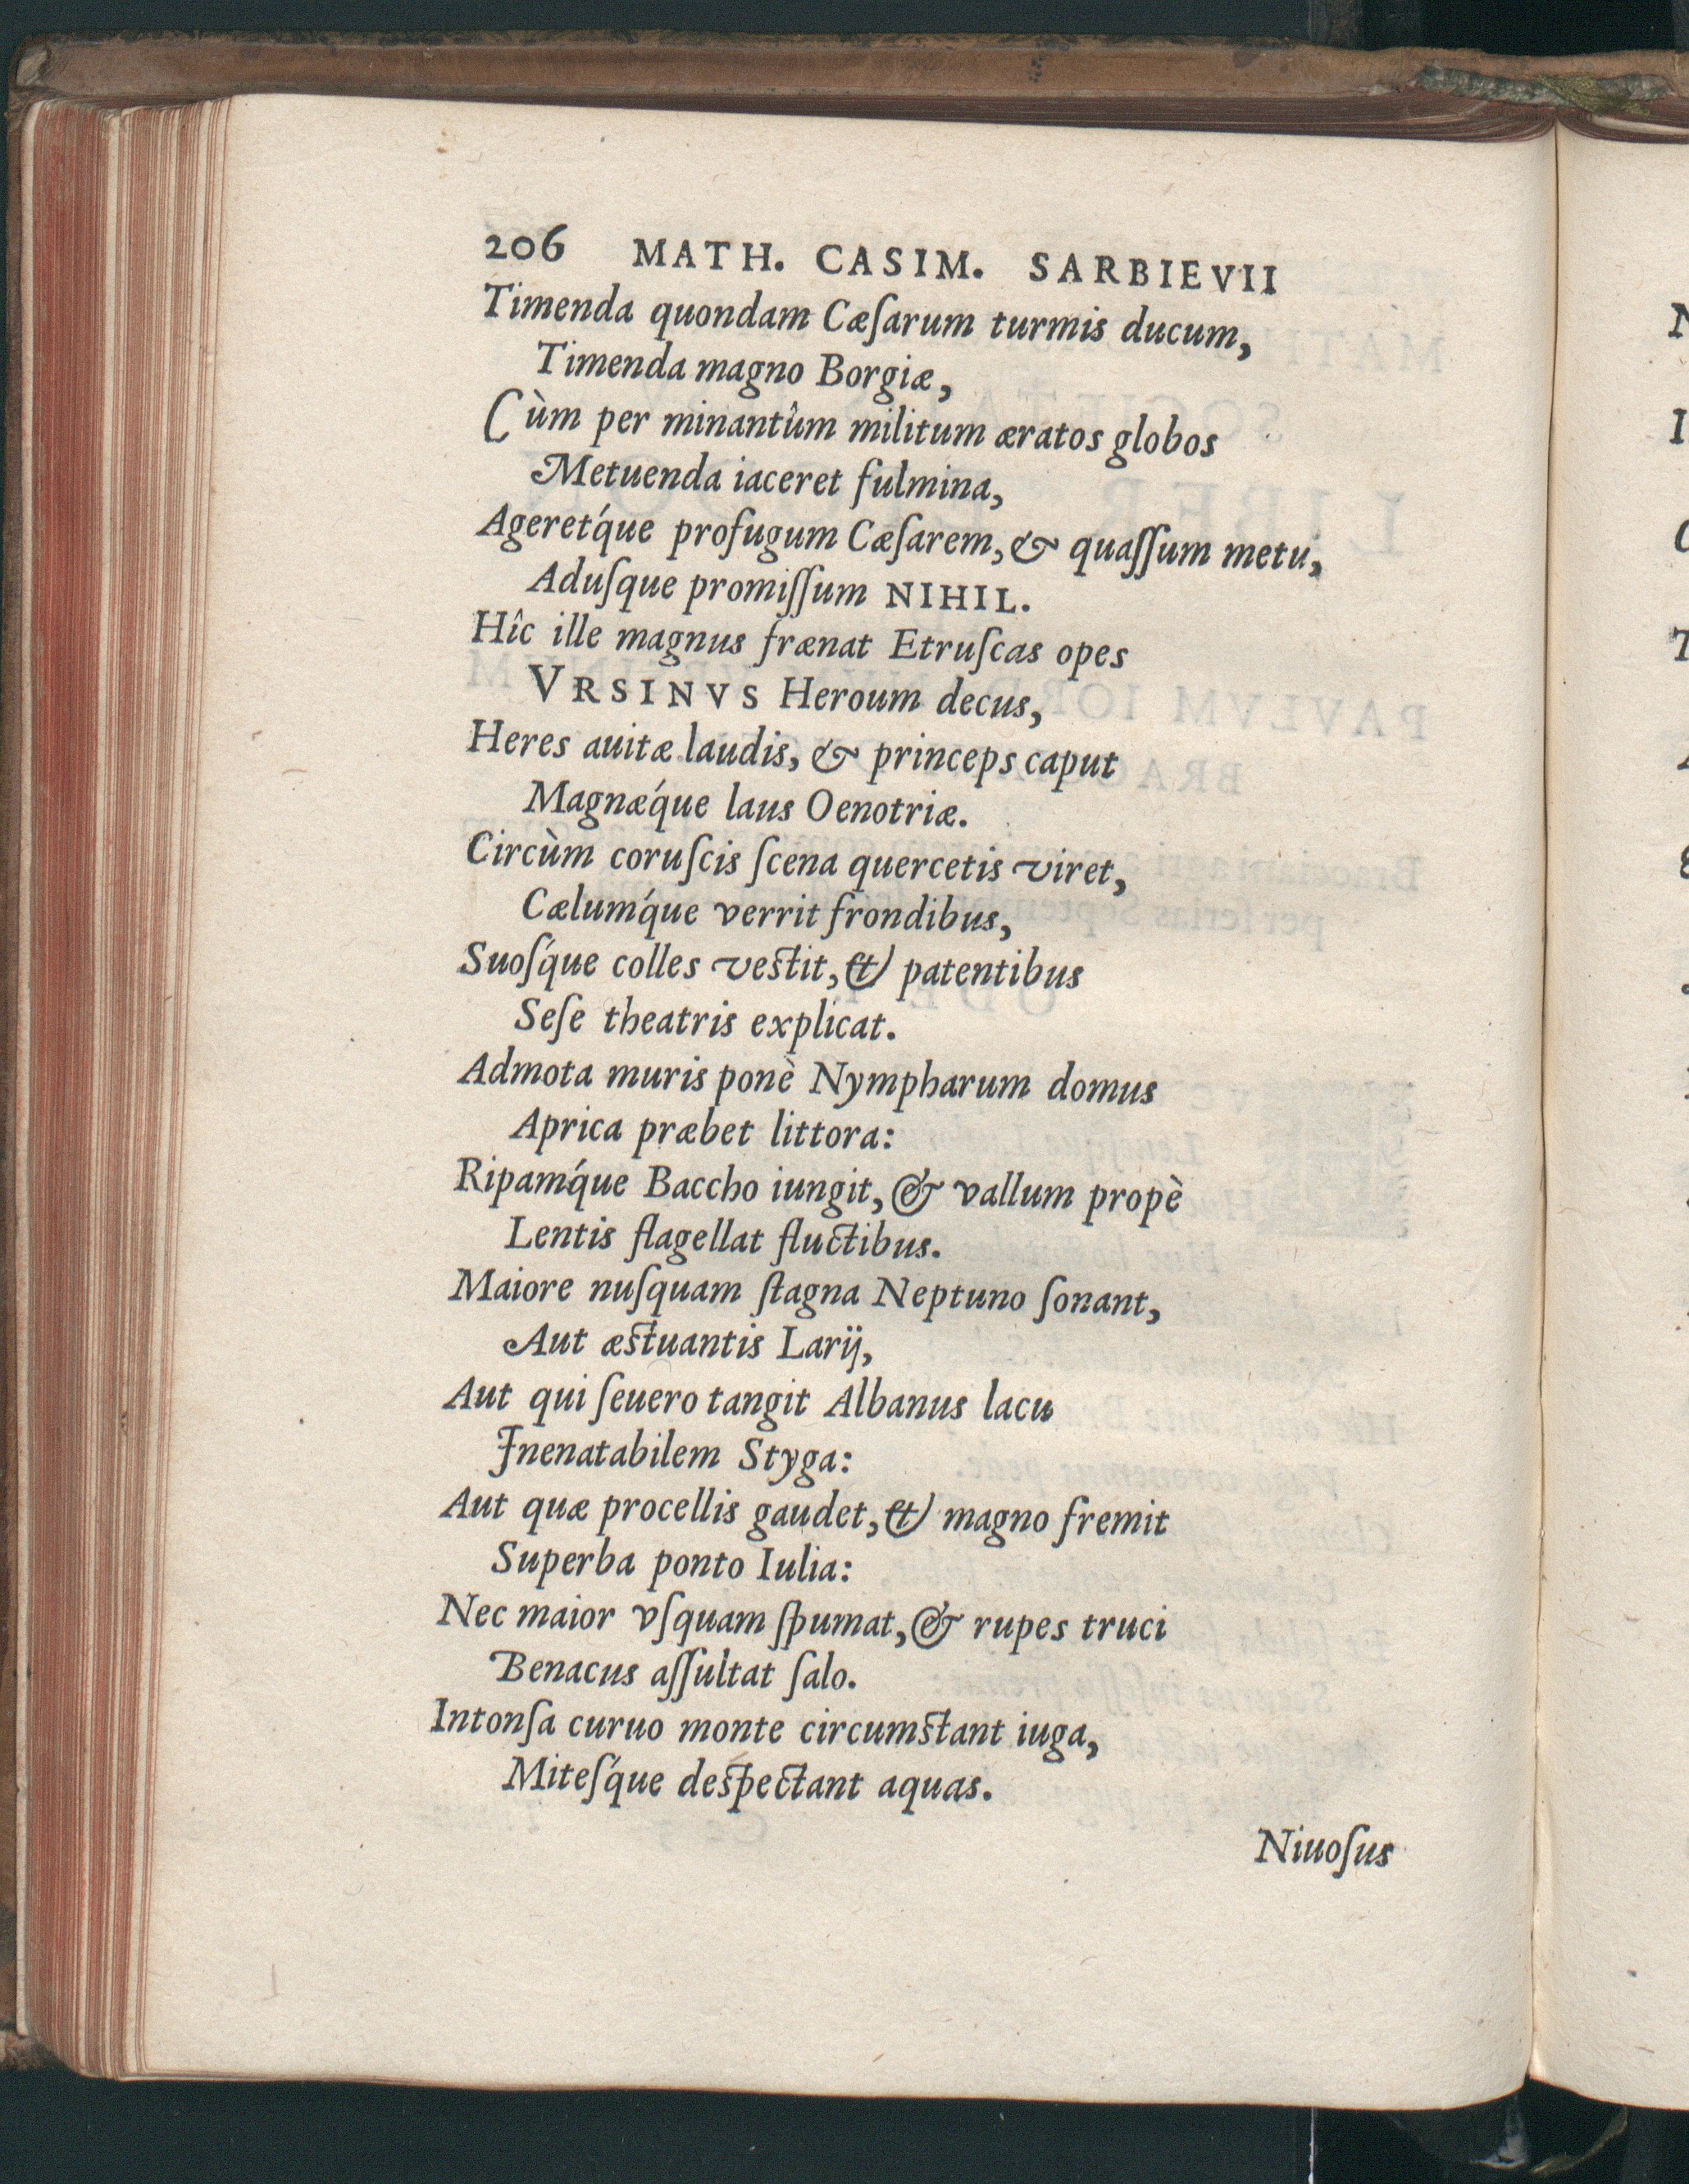 206 MATH. CASIM. SARBIEVII
Timenda quondam Cæſarum turmis ducum,
Timenda magno Borgiæ,
Cùm per minantûm militum æratos globos
Metuenda iaceret fulmina,
Ageret́que profugum Cæſarem, & quaſſum metu,
Aduſque promiſſum NIHIL.
Hîc ille magnus frænat Etruſcas opes
VRSINVS Heroum decus,
Heres auitæ laudis, & princeps caput
Magnǽque laus Oenotriæ.
Circùm coruſcis ſcena quercetis viret,
Cælumq́ue verrit frondibus,
Suoſq́ue colles veſtit, & patentibus
Seſe theatris explicat.
Admota muris ponè Nympharum domus
Aprica præbet littora:
Ripamq́ue Baccho iungit, & vallum propè
Lentis flagellat fluctibus.
Maiore nuſquam ſtagna Neptuno ſonant,
Aut æſtuantis Larij,
Aut qui ſeuero tangit Albanus lacu
Inenatabilem Styga:
Aut quæ procellis gaudet, & magno fremit
Superba ponto Iulia:
Nec maior vſquam ſpumat, & rupes truci
Benacus aſſultat ſalo.
Intonſa curuo monte circumſtant iuga,
Miteſq́ue deſpectant aquas.
Niuoſus